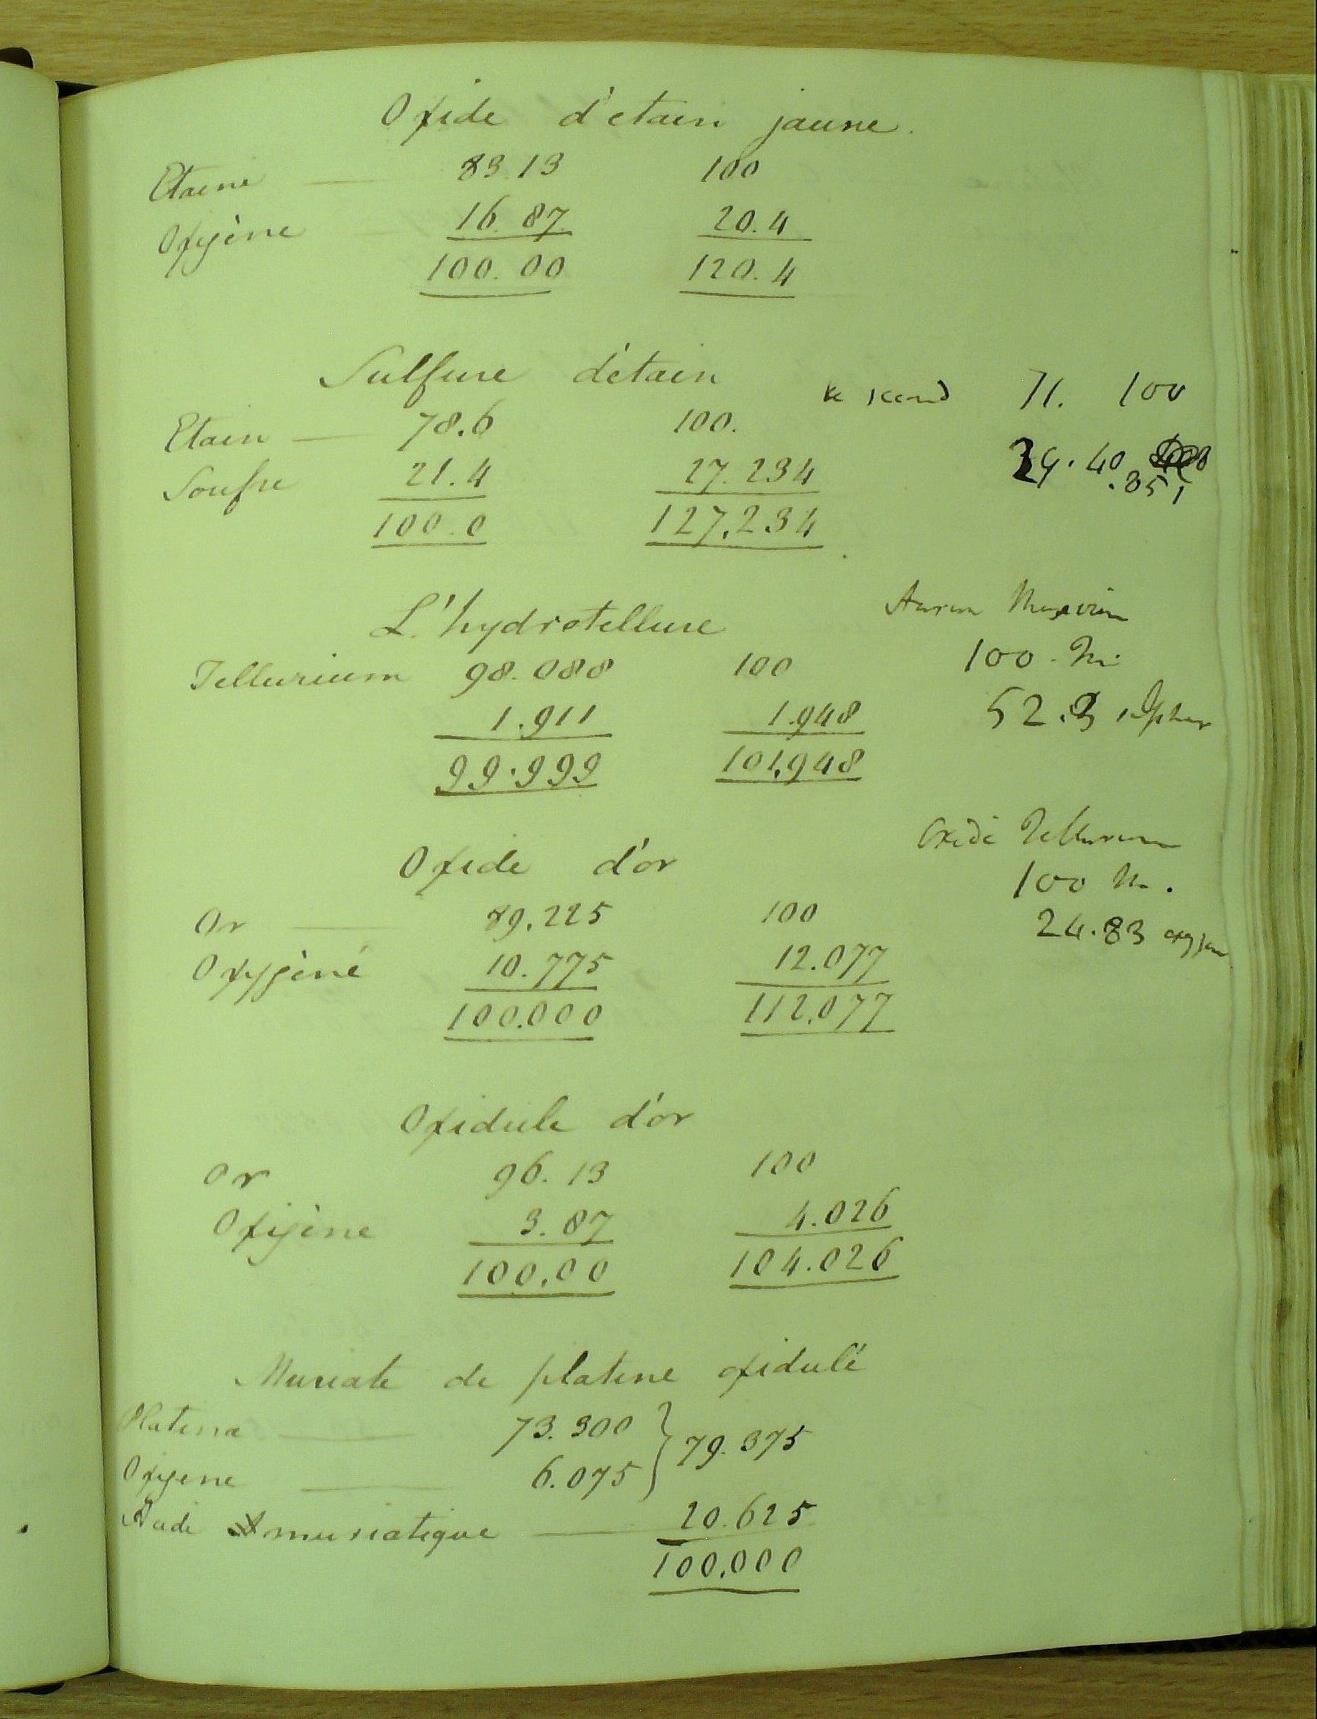 Oxide d'etain jaune.
Etaine — 83.13 100
Oxigène 16.87 20.4
100.00 120.4
Sulfure d'étain
Etain — 78.6 100.
Soufre 21.4 27.234
100.0 127.234
second 71. 100
29. 40.
.851
L'hydrotellure
Tellurium 98.088 100
1.911 1.948
99.999 101,948
Aurum Musivum
100 m.
52.3 sulphur
Oxide d'or
Or — 89.225 100
Oxygèné 10.775 12.077
100.000 112,077
Oxide Tellurium
100 m.
24.83 oxygen
Oxidule d'or
Or 96.13 100
Oxigène 3.87 4.026
100,00 104.026
Muriate de platine oxidulé
Platina — 73.300 } 79.375
Oxigene — 6.075
Acide muriatique — 20.625
100,000